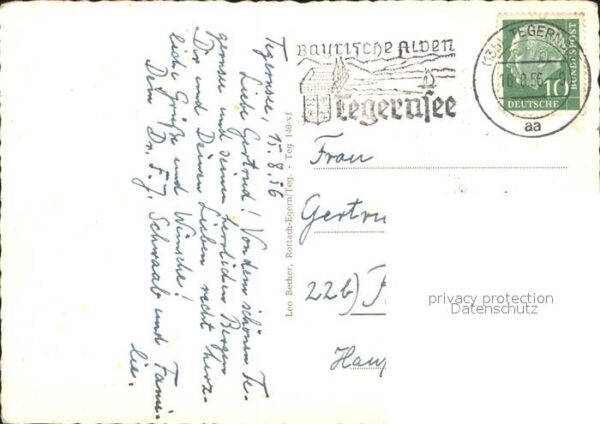 Tegernsee, 15.8.56
Liebe Gertrud! Von dem schönen Te-
gernsee und seinen herrlichen Bergen
Dir und Deinen Lieben recht herz-
liche Grüße und Wünsche!
Dein Dr. F. J. Schwaab und Fami-
lie.
Leo Becher, Rottach-Egern/Teg. - Teg 140-vf
Bayrische Alpen
Tegernsee
(13b) TEGERNSEE
16.8.56
aa
10
DEUTSCHE
BUNDESPOST
Frau
Gertru
22b)
Haup
privacy protection
Datenschutz